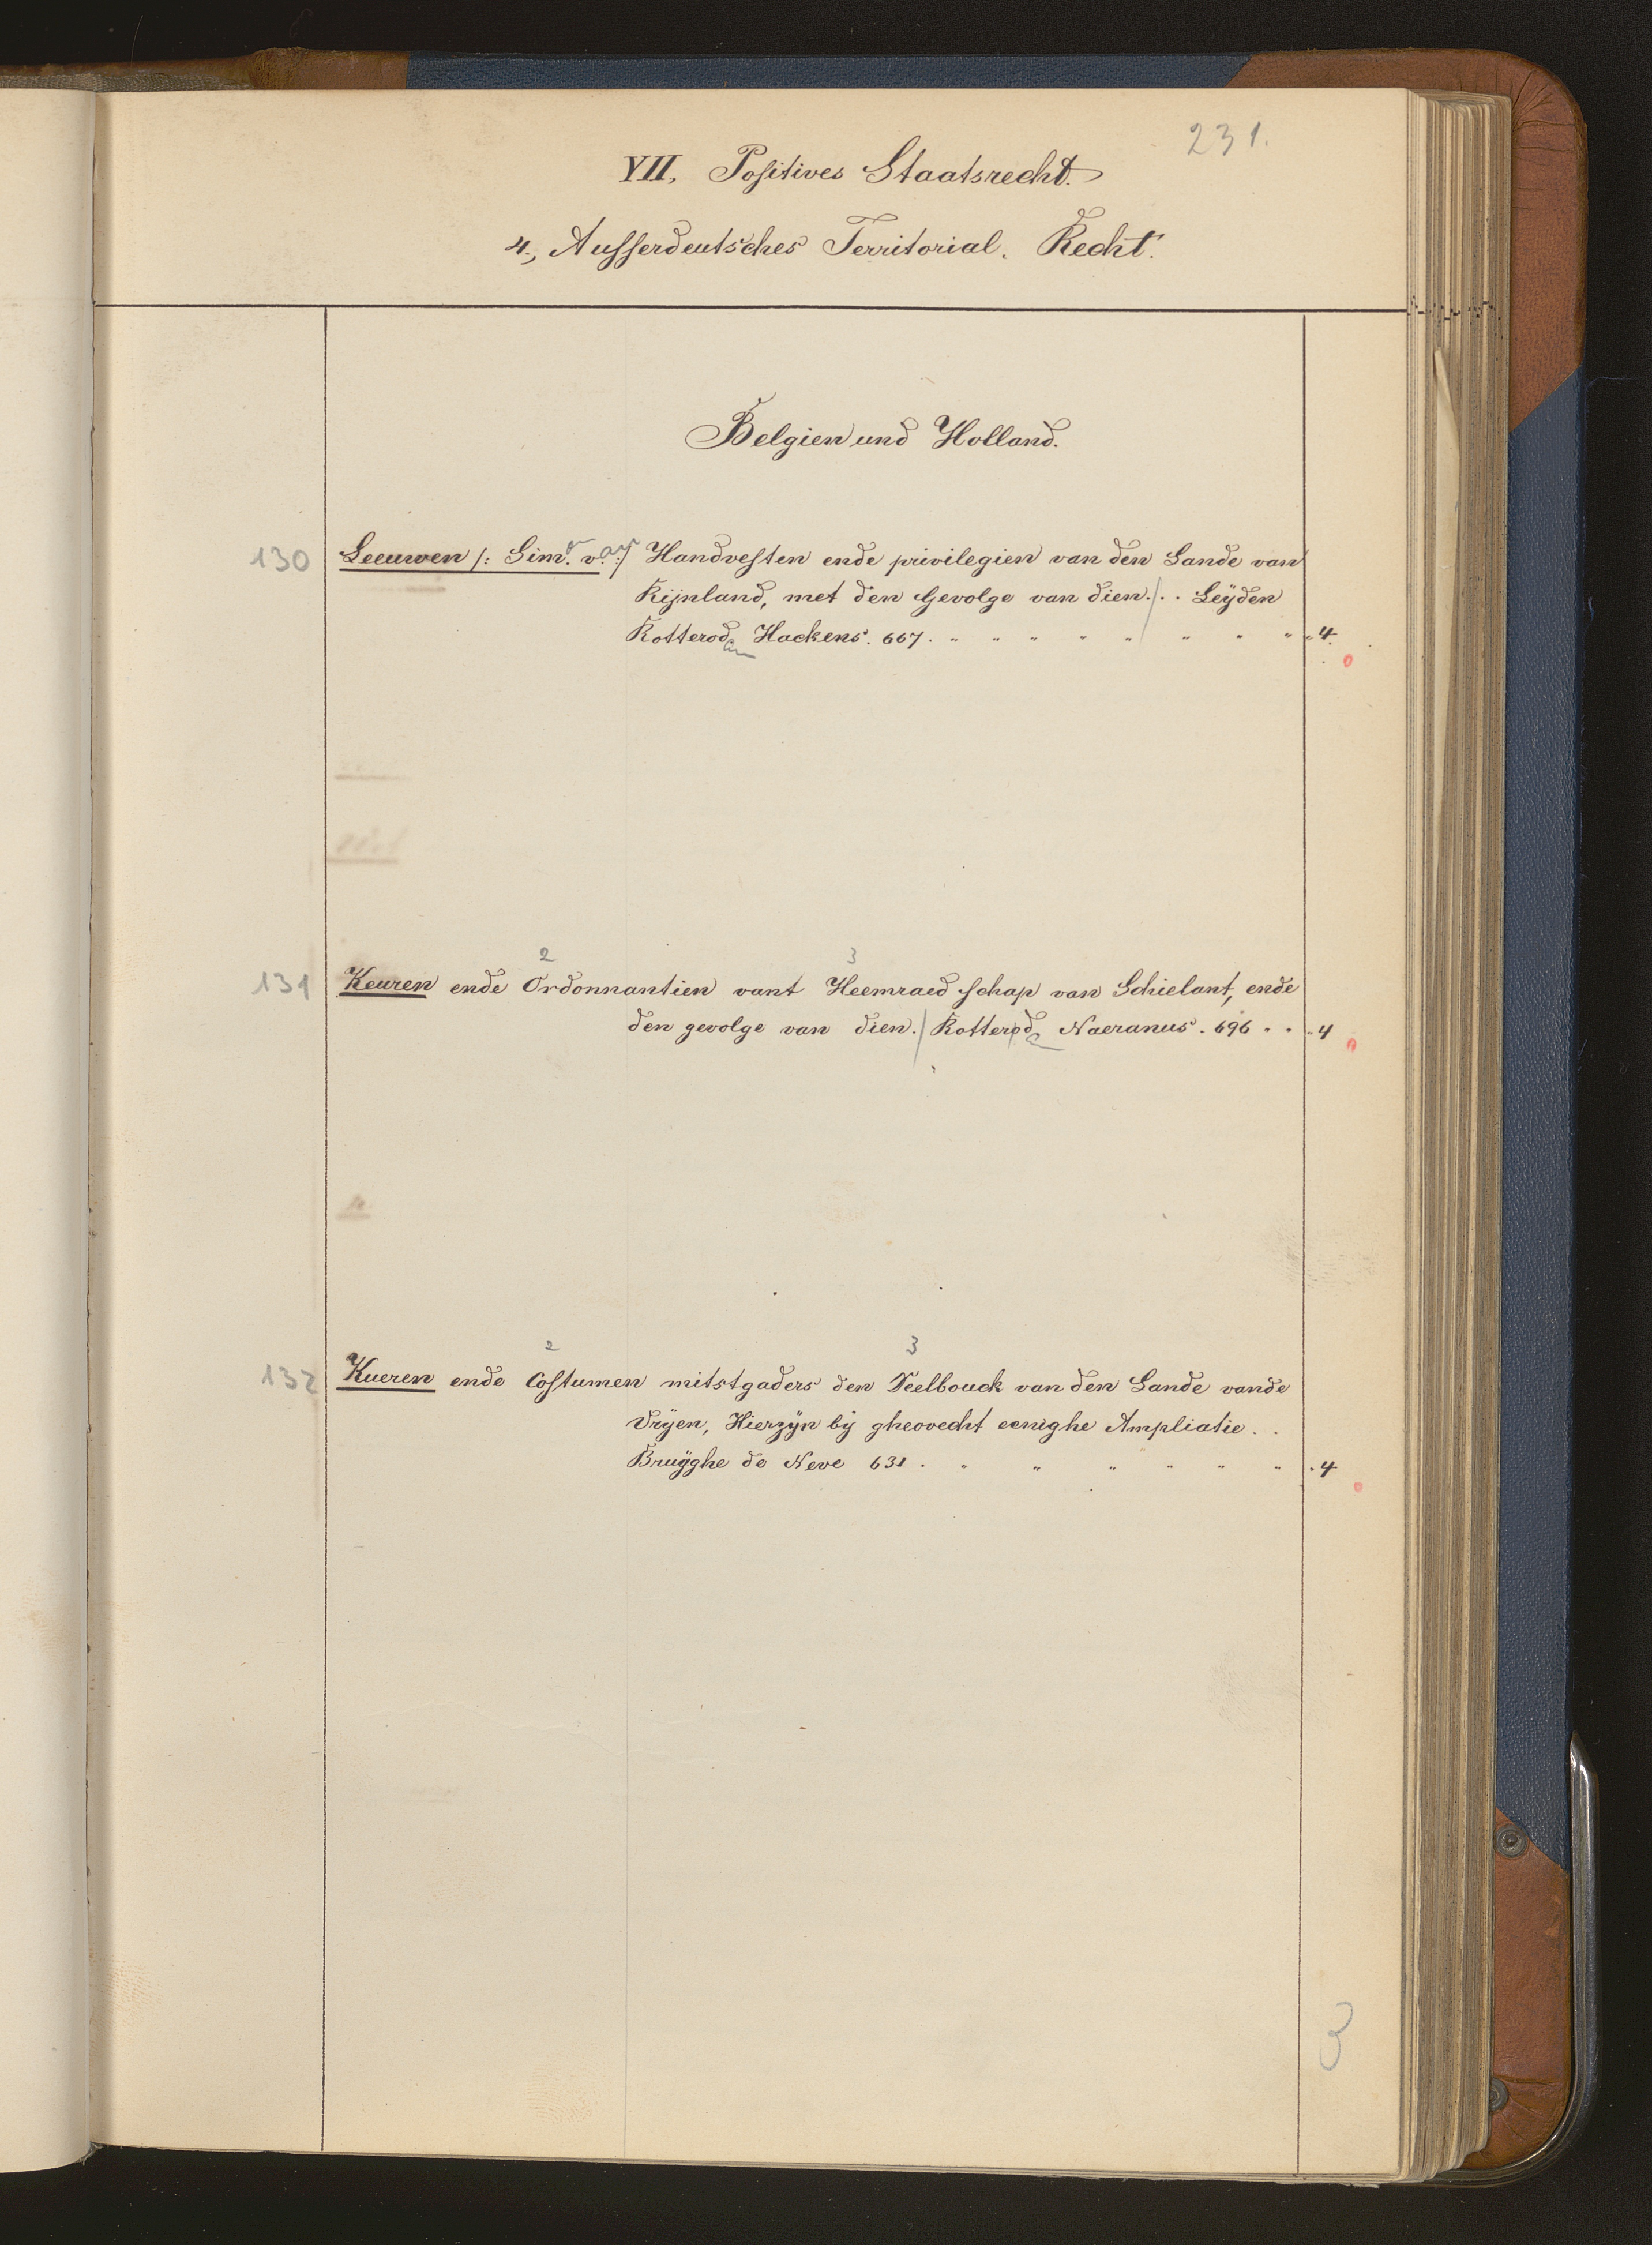 231.
VII. Positives Staatsrecht.
4., Ausserdeutsches Territorial. Recht.
Belgien und Holland.
130 Leeuwen /: Sim. van :/ Handvesten ende privilegien van den Lande van
Rijnland, met den Gevolge van dien./.. Leÿden
Rotterodam Hackens. 667. " " " " " " " " " 4.
0
2 3
131 Keuren ende Ordonnantien vant Heemraed schap van Schielant, ende
den gevolge van dien./ Rotterod Naeranus. 696 . . . 4
0
2 3
132 Kueren ende Costumen mitstgaders den Deelbouck van den Lande vande
Vrÿen, Hierzÿn bÿ gheovecht eenighe Ampliatie. .
Bruÿghe de Neve 631 . " " " " " " . 4
0
3